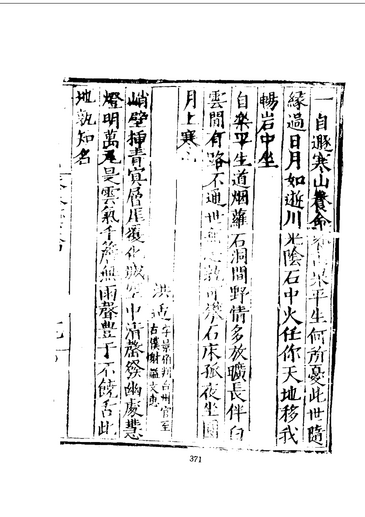 一自遯寒山養命 山果平生何所憂此世隨
緣過日月如逝川光陰石中火任你天地移我
暢岩中坐
自樂平生道烟蘿石洞間野情多放曠長伴白
雲閒有路不通世無心孰可攀石床孤夜坐圓
月上寒
洪适
字景伯 台州官至
文惠
峭壁插青 層崖 化城空中清磬發幽處慧
燈明萬 是雲氣千 無雨聲豐干不饒舌此
地孰知名
371